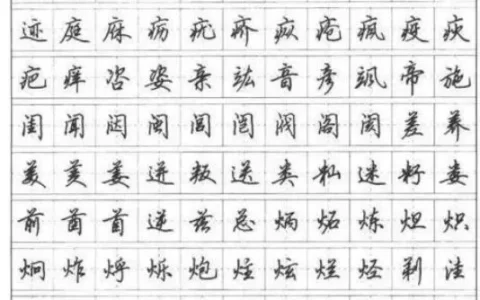 迹庭庥疠疣疥疭疮疯疫疢
疤庠咨姿亲竑音彦飒帝施
闺闻闼闽闾闿阀阁阂差养
美羑姜迸叛送类籼迷籽娄
前酋首逆兹总炳炻炼炟炽
炯炸烀烁炮炷炫烂烃剃洼